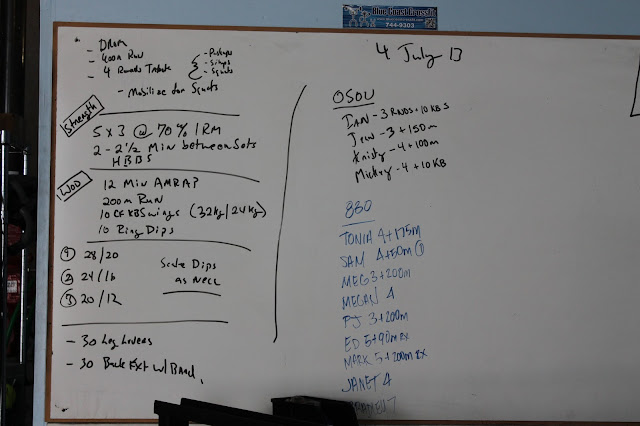 Blue Coast Crossfit
744-9303
4 July 13
- DROM
- 400m Run
- 4 Rounds Tabata
- Pushups
- Situps
- Squats
- Mobilize for Squats
Strength
5 x 3 @ 70% 1RM
2 - 2 1/2 Min between Sets
HBBS
WOD
12 Min AMRAP
200m Run
10 CF KB Swings (32kg/24kg)
10 Ring Dips
① 28/20
② 24/16
③ 20/12
Scale Dips
as Necc
- 30 Leg Levers
- 30 Back Ext w/ Band
0500
IAN - 3 RNDS + 10 KB S
Jen - 3 + 150m
Kristy - 4 + 100m
Mickey - 4 + 10 KB
830
TONIA 4+175m
SAM 4+50m ①
MEG 3+200m
MEGAN 4
PJ 3+200m
ED 5+90m RX
MARK 5+200m RX
JANET 4